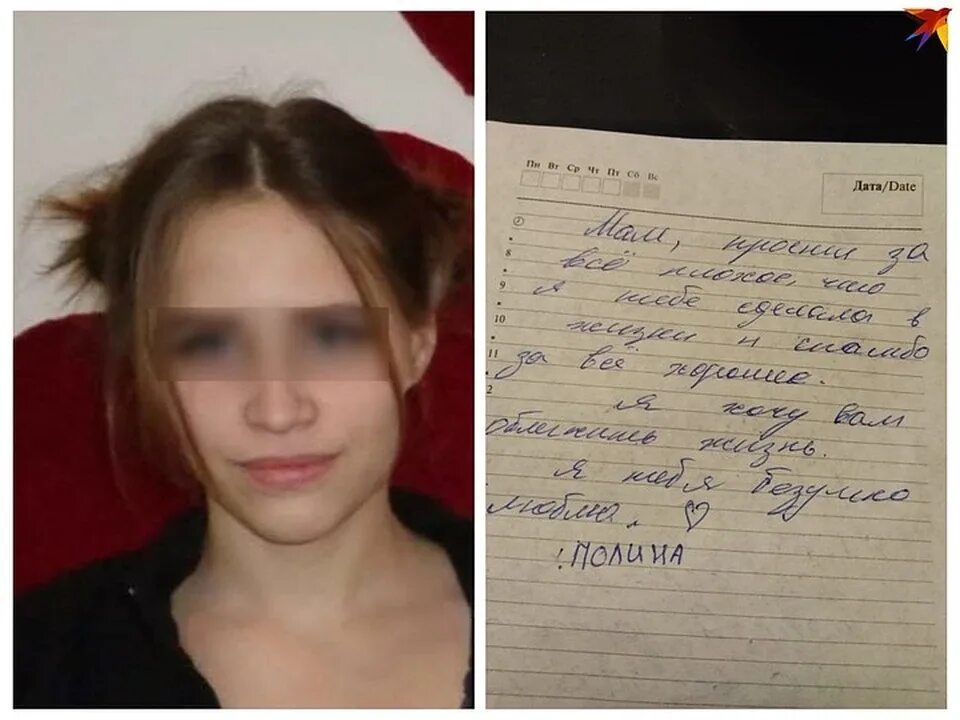 Пн Вт Ср Чт Пт Сб Вс
Дата/Date
Мам, прости за
всё плохое, что
я тебе сделала в
жизни и спасибо
за всё хорошее.
Я хочу вам
облегчить жизнь.
Я тебя безумно
люблю. ♡
! ПОЛИНА
8
9
10
11
2